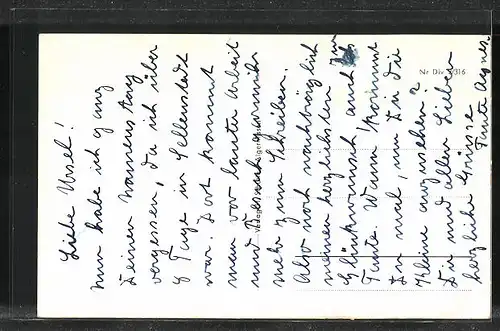 Liebe Ursel!
Nun habe ich ganz
Deinen Namenstag
vergessen, da ich über
8 Tage in Ellenstedt
war. Dort kommt
man vor lauter Arbeit
und Besuch garnicht
mehr zum Schreiben.
Also noch nachträglich
meinen herzlichsten
Glückwunsch auch zur
Tante. Wann kommst
Du mal, um Dir die
Kleine anzusehen?
Dir und allen Lieben
herzliche Grüsse
Tante Agnes
Nr Div 5316